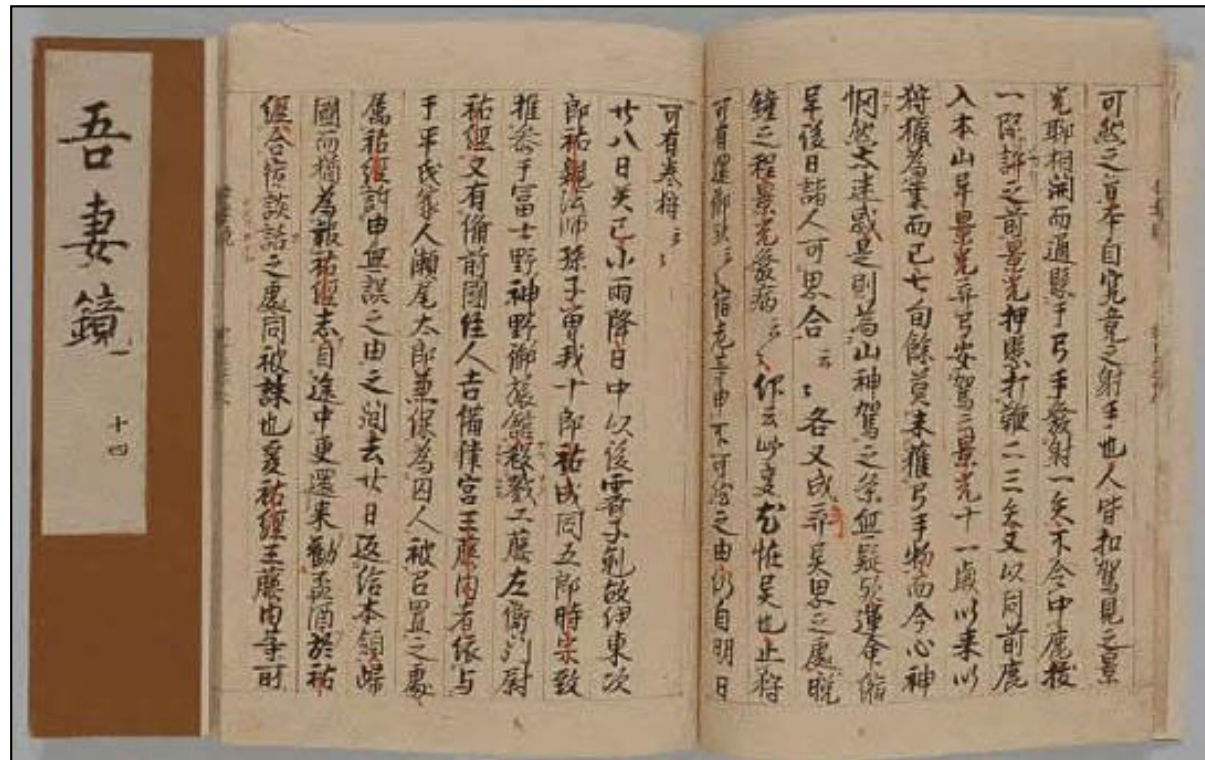 可然之首本自究竟之射手也人皆扣駕見之景
光聊相開而通懸于弓手發射一矢不令中鹿拔
一段許之前景光押懸打鞭二三矢又以同前鹿
入本山畢景光弃弓安駕云景光十一歲以来以
狩獵為業而已七旬餘莫未獲弓手物而今心神
惘然太迷惑是則為山神駕之条無疑歟運命縮
畢後日諸人可思合云々各又成奇異思之處晩
鐘之程景光發病云々仰云此事尤恠異也止狩
可有還御歟云々宿老等申不可然之由仍自明日
可有巻狩云々
廿八日癸巳小雨降日中以後霽子剋故伊東次
郎祐親法師孫子曽我十郎祐成同五郎時宗致
推参于冨士野神野御旅舘殺戮工藤左衛門尉
祐經又有備前國住人吉備津宮王藤内者依与
于平氏家人瀬尾太郎兼保為囚人被召置之處
属祐經訴申無誤之由之間去廿日返給本領歸
國而猶為報祐經志自途中更還来勧盃酒於祐
經合宿談話之處同被誅也爰祐經王藤内等所
吾妻鏡
十四